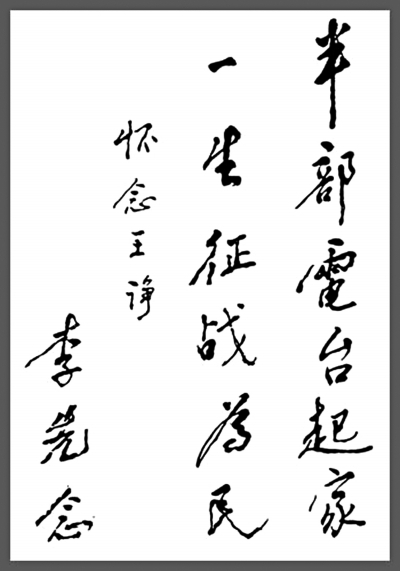 半部電台起家
一生征战為民
怀念王诤
李先念